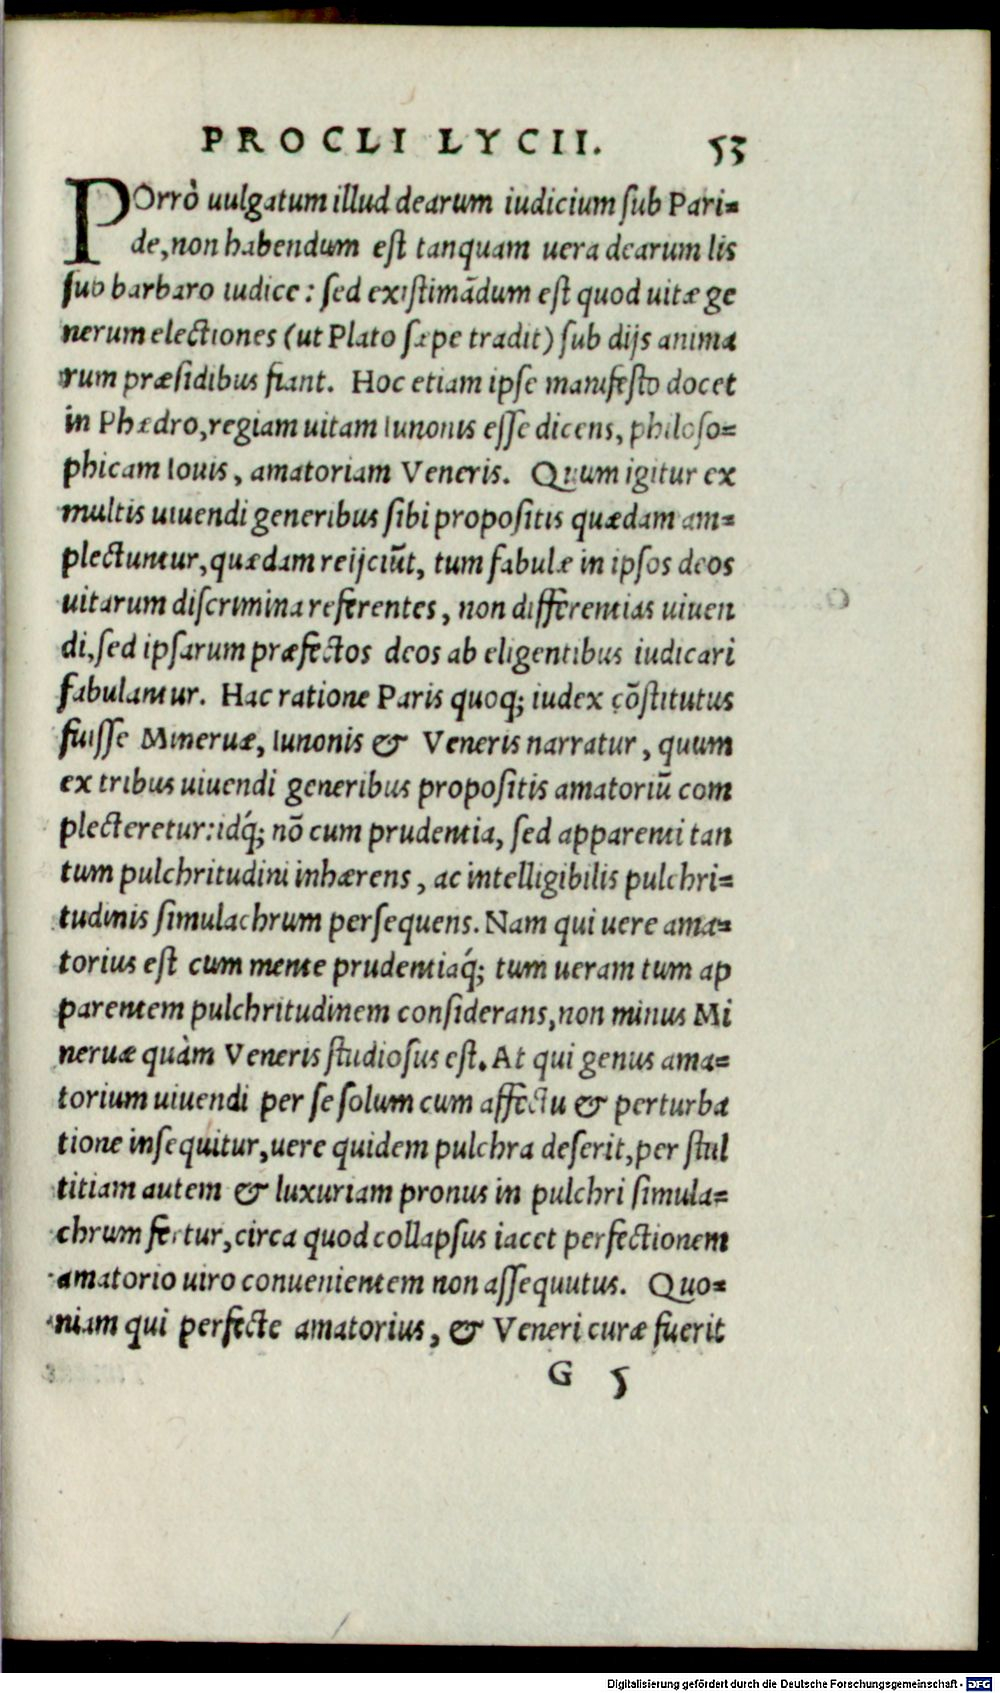 PROCLI LYCII. 53
POrrò uulgatum illud dearum iudicium sub Pari=
de, non habendum est tanquam uera dearum lis
sub barbaro iudice: sed existimãdum est quod uitæ ge
nerum electiones (ut Plato sæpe tradit) sub dijs anima
rum præsidibus fiant. Hoc etiam ipse manifesto docet
in Phædro, regiam uitam Iunonis esse dicens, philoso=
phicam Iouis, amatoriam Veneris. Quum igitur ex
multis uiuendi generibus sibi propositis quædam am=
plectuntur, quædam reijciũt, tum fabulæ in ipsos deos
uitarum discrimina referentes, non differentias uiuen
di, sed ipsarum præfectos deos ab eligentibus iudicari
fabulantur. Hac ratione Paris quoq; iudex cõstitutus
fuisse Mineruæ, Iunonis & Veneris narratur, quum
ex tribus uiuendi generibus propositis amatoriũ com
plecteretur: idq́; nõ cum prudentia, sed apparenti tan
tum pulchritudini inhærens, ac intelligibilis pulchri=
tudinis simulachrum persequens. Nam qui uere ama=
torius est cum mente prudentiaq́; tum ueram tum ap
parentem pulchritudinem considerans, non minus Mi
neruæ quàm Veneris studiosus est. At qui genus ama=
torium uiuendi per se solum cum affectu & perturba
tione insequitur, uere quidem pulchra deserit, per stul
titiam autem & luxuriam pronus in pulchri simula=
chrum fertur, circa quod collapsus iacet perfectionem
amatorio uiro conuenientem non assequutus. Quo=
niam qui perfecte amatorius, & Veneri curæ fuerit
G 5
Digitalisierung gefördert durch die Deutsche Forschungsgemeinschaft - DFG